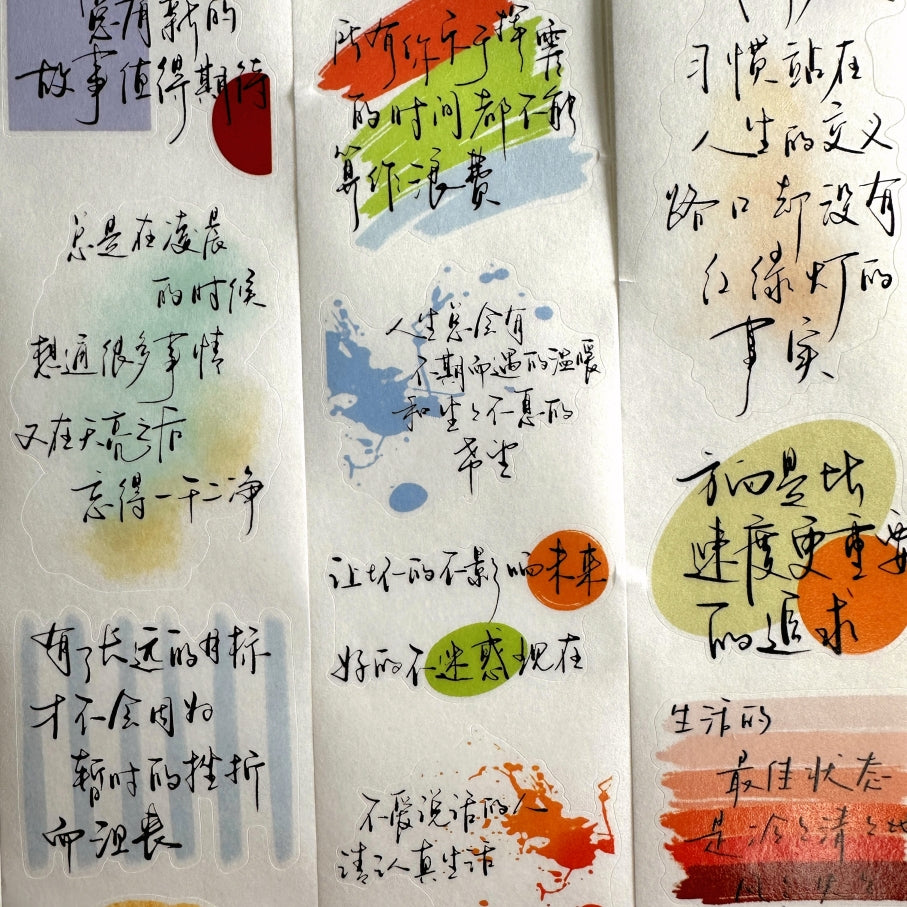 总有新的
故事值得期待
总是在凌晨
的时候
想通很多事情
又在天亮之后
忘得一干二净
有了长远的目标
才不会因为
暂时的挫折
而沮丧
所有你乐于挥霍
的时间都不能
算作浪费
人生总会有
不期而遇的温暖
和生生不息的
希望
让坏的不影响未来
好的不迷惑现在
不爱说话的人
请认真生活
习惯站在
人生的交叉
路口却没有
红绿灯的
事实
方向是比
速度更重要
的追求
生活的
最佳状态
是冷冷清清地